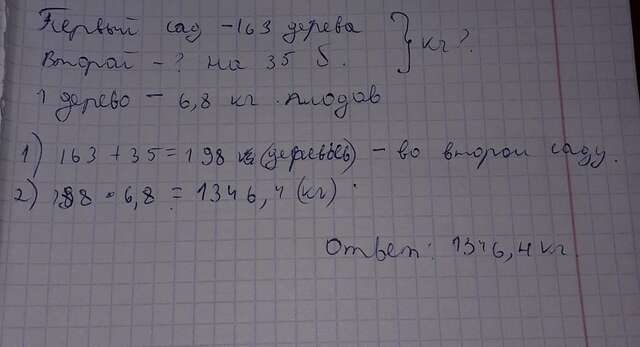 Первый сад - 163 дерева
Второй - ? на 35 б. } кг?
1 дерево - 6,8 кг плодав
1) 163 + 35 = 198 (деревьев) - во втором саду.
2) 198 · 6,8 = 1346,4 (кг)
Ответ: 1346,4 кг